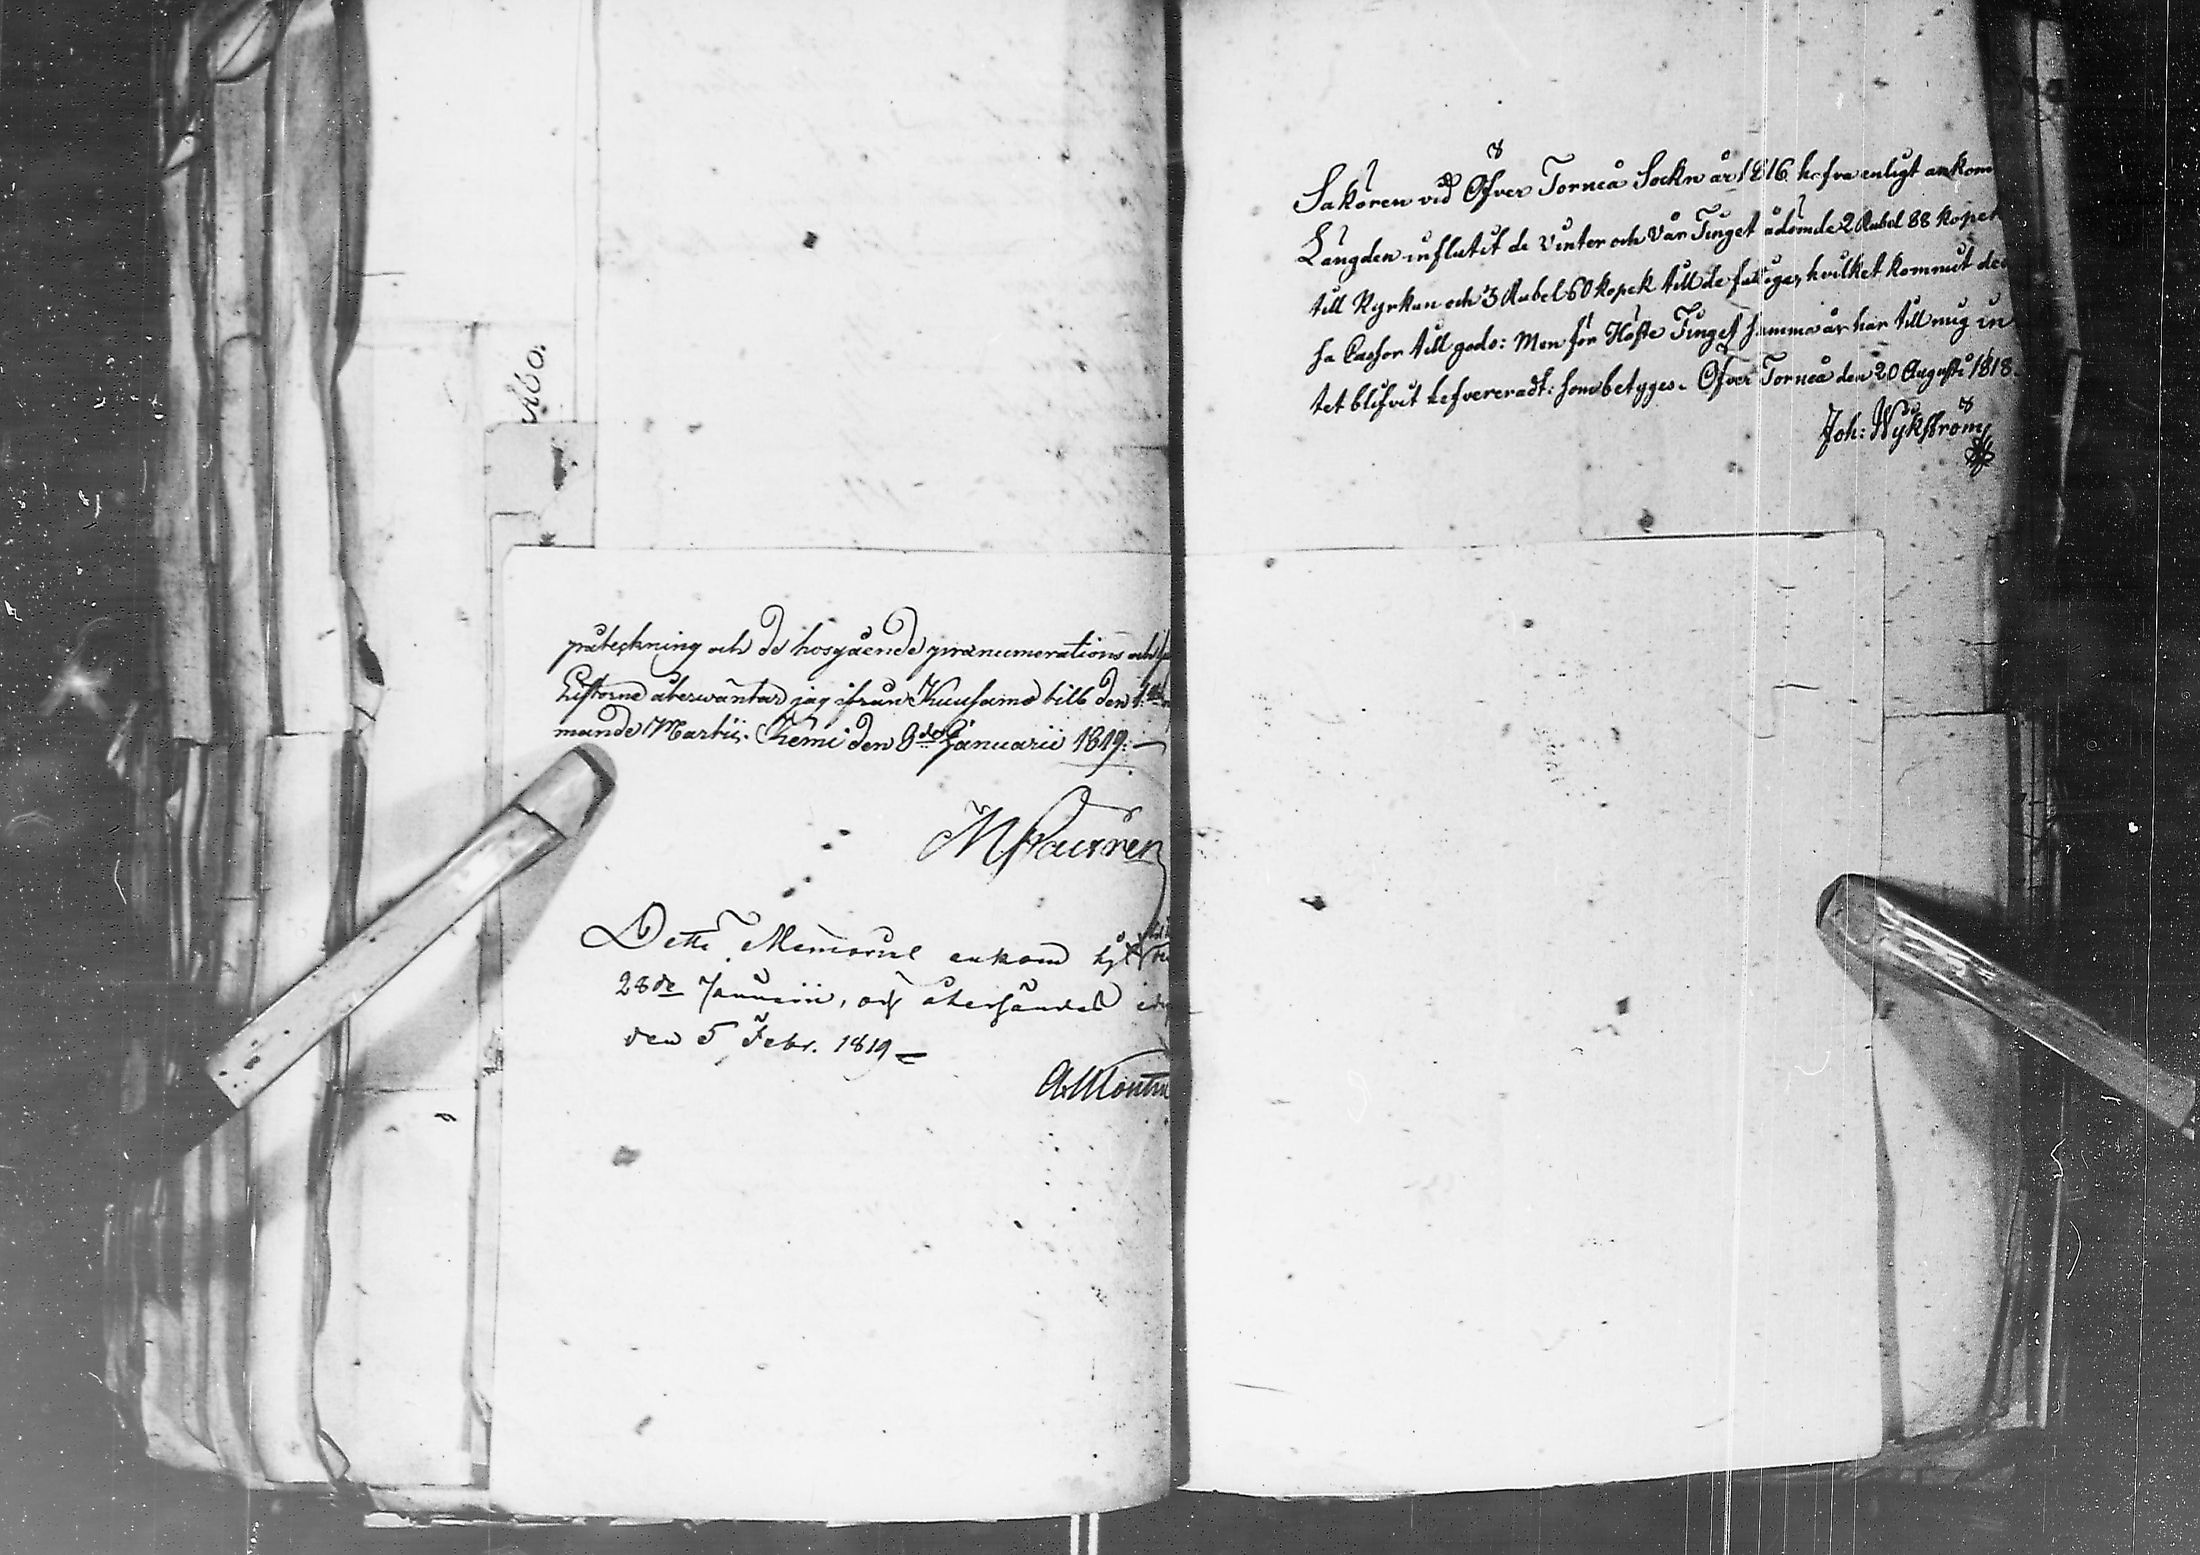 Åbo.
påteckning och de hosgående prænumerations och
Listorne återwäntar jag ifrån Kuusamo till den 1:sta
mande Martii. Kemi den 8de Januarii 1819.
Detta Memorial ankom
28de Januarii, och återsändes
den 5 Febr. 1819
Sakören vid Öfver Torneå Sockn år 1816 hafva enligt ankom
Längden influtit de vinter och Vår Tinget ådömde 2 Rubel 88 kopek
till Kyrkan och 3 Rubel 60 kopek till de fattiga, hvilket kommit des
sa Cassor till godo: Men för Höste Tinget samma år har till mig in
tet blifvit lefvereradt: som betyges. Öfver Torneå den 20 Augusti 1818.
Joh: Wykström